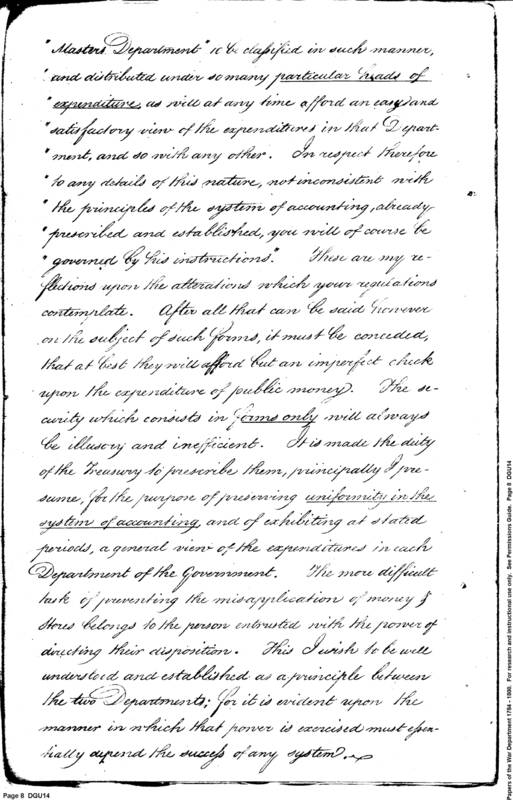 " Masters Department" to be classified in such manner,
" and distributed under so many particular heads of
" expenditure, as will at any time afford an easy and
" satisfactory view of the expenditures in that Depart-
" ment, and so with any other. In respect therefore
" to any details of this nature, not inconsistent with
" the principles of the system of accounting, already
" prescribed and established, you will of course be
" governed by his instructions". These are my re-
flections upon the alterations which your regulations
contemplate. After all that can be said however
on the subject of such forms, it must be conceded,
that at best they will afford but an imperfect check
upon the expenditure of public money. The se-
curity which consists in forms only will always
be illusory and inefficient. It is made the duty
of the Treasury to prescribe them, principally I pre-
sume, for the purpose of preserving uniformity in the
system of accounting, and of exhibiting at stated
periods, a general view of the expenditures in each
Department of the Government. The more difficult
task of preventing the misapplication of money &
Stores belongs to the person entrusted with the power of
directing their disposition. This I wish to be well
understood and established as a principle between
the two Departments; for it is evident upon the
manner in which that power is exercised must essen-
tially depend the success of any system.
Page 8 DGU14
Papers of the War Department 1784 - 1800. For research and instructional use only. See Permissions Guide. Page 8 DGU14